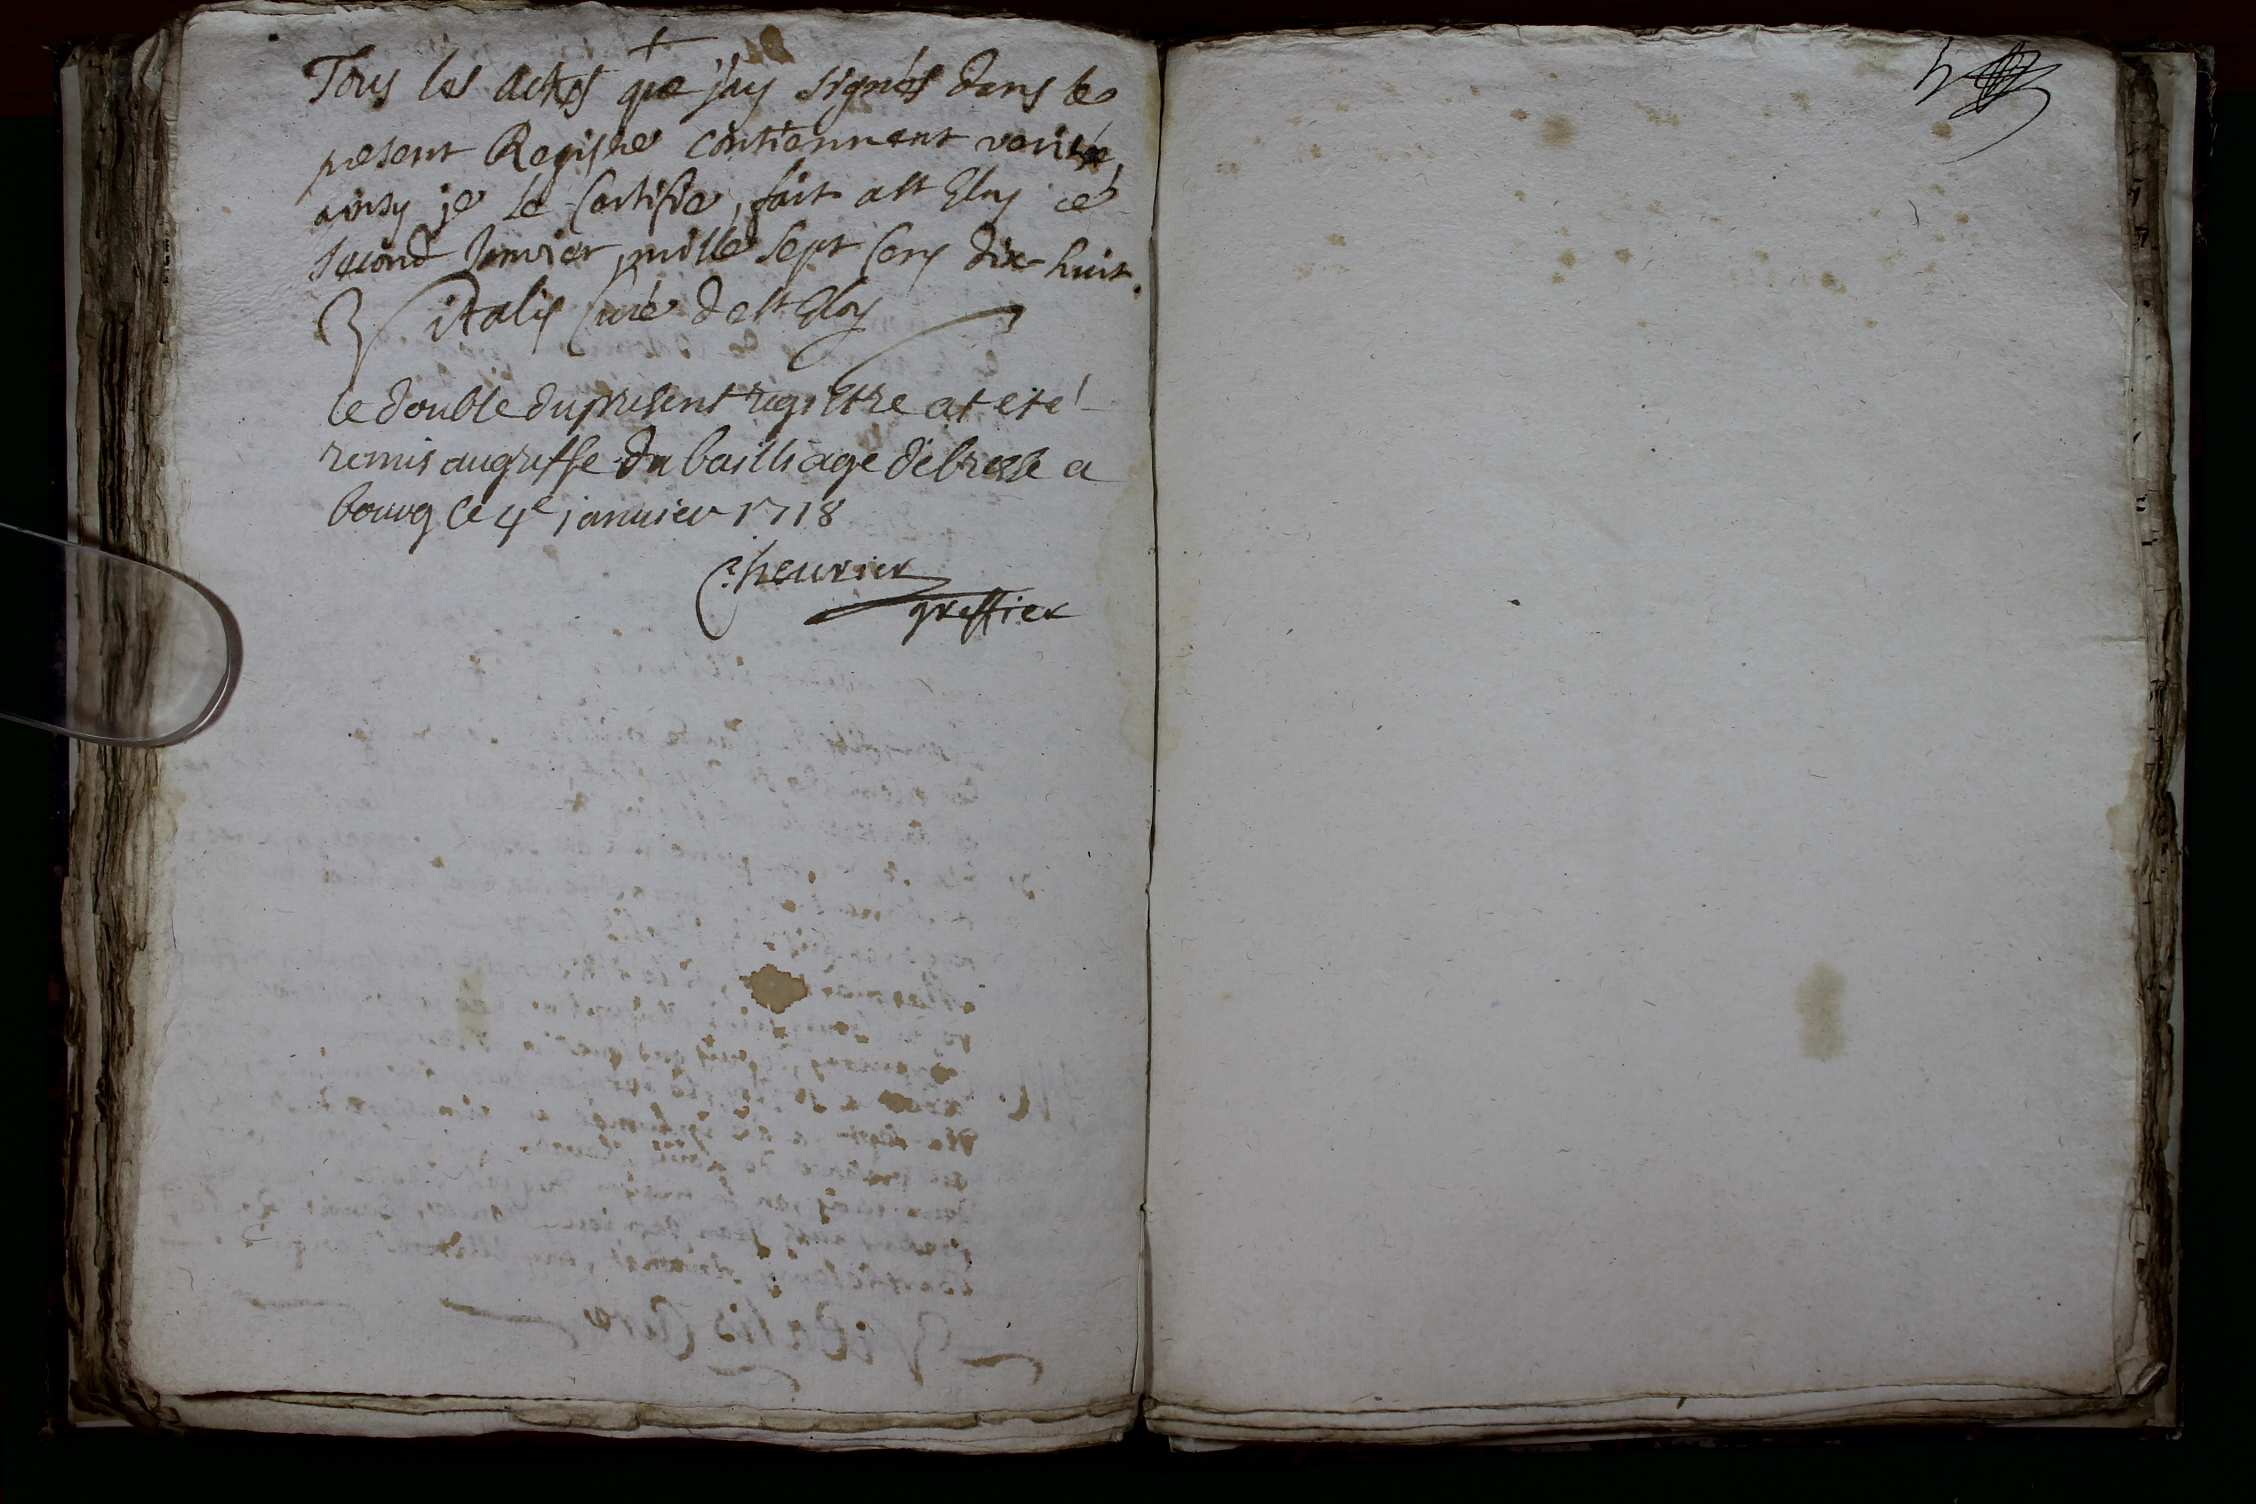 Tous les actes que j'ay signés dans le
present Registre contiennent verité,
ainsy je le certifie, fait a St Eloy ce
second Janvier mille sept cens dix-huit.
Vitalis Curé de St Eloy
le double du present registre at eté
remis au greffe du bailliage de bresse a
bourg le 4e janvier 1718
Cheurier
greffier